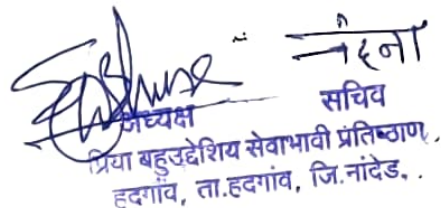 अध्यक्ष सचिव
प्रिया बहुउद्देशिय सेवाभावी प्रतिष्ठाण,
हदगाँव, ता.हदगांव, जि.नांदेड.